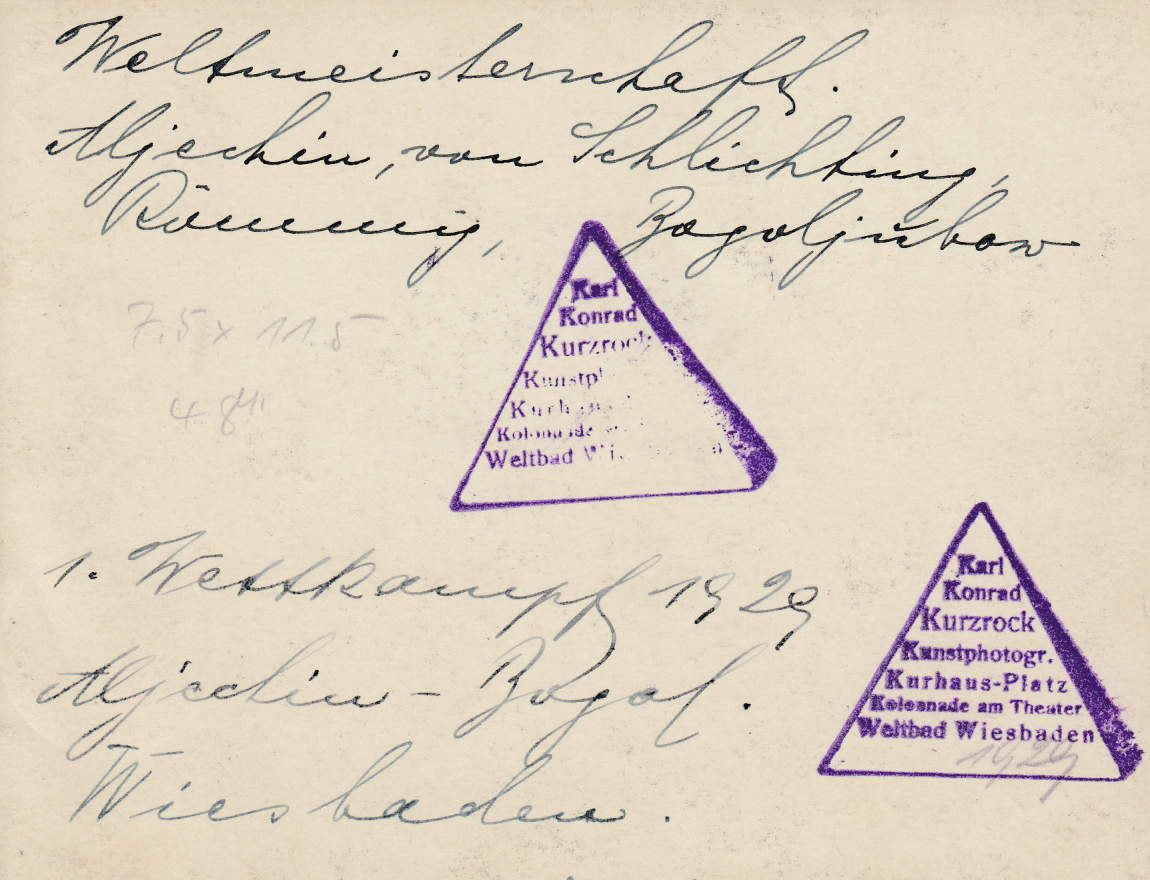 Weltmeisterschaft.
Aljechin, von Schlichting,
Römmig, Bogoljubow
7.5 x 11.5
Karl
Konrad
Kurzrock
Kolonnade
Weltbad
1. Wettkampf 1929
Aljechin - Bogol.
Wiesbaden.
Karl
Konrad
Kurzrock
Kunstphotogr.
Kurhaus-Platz
Kolonnade am Theater
Weltbad Wiesbaden
1929